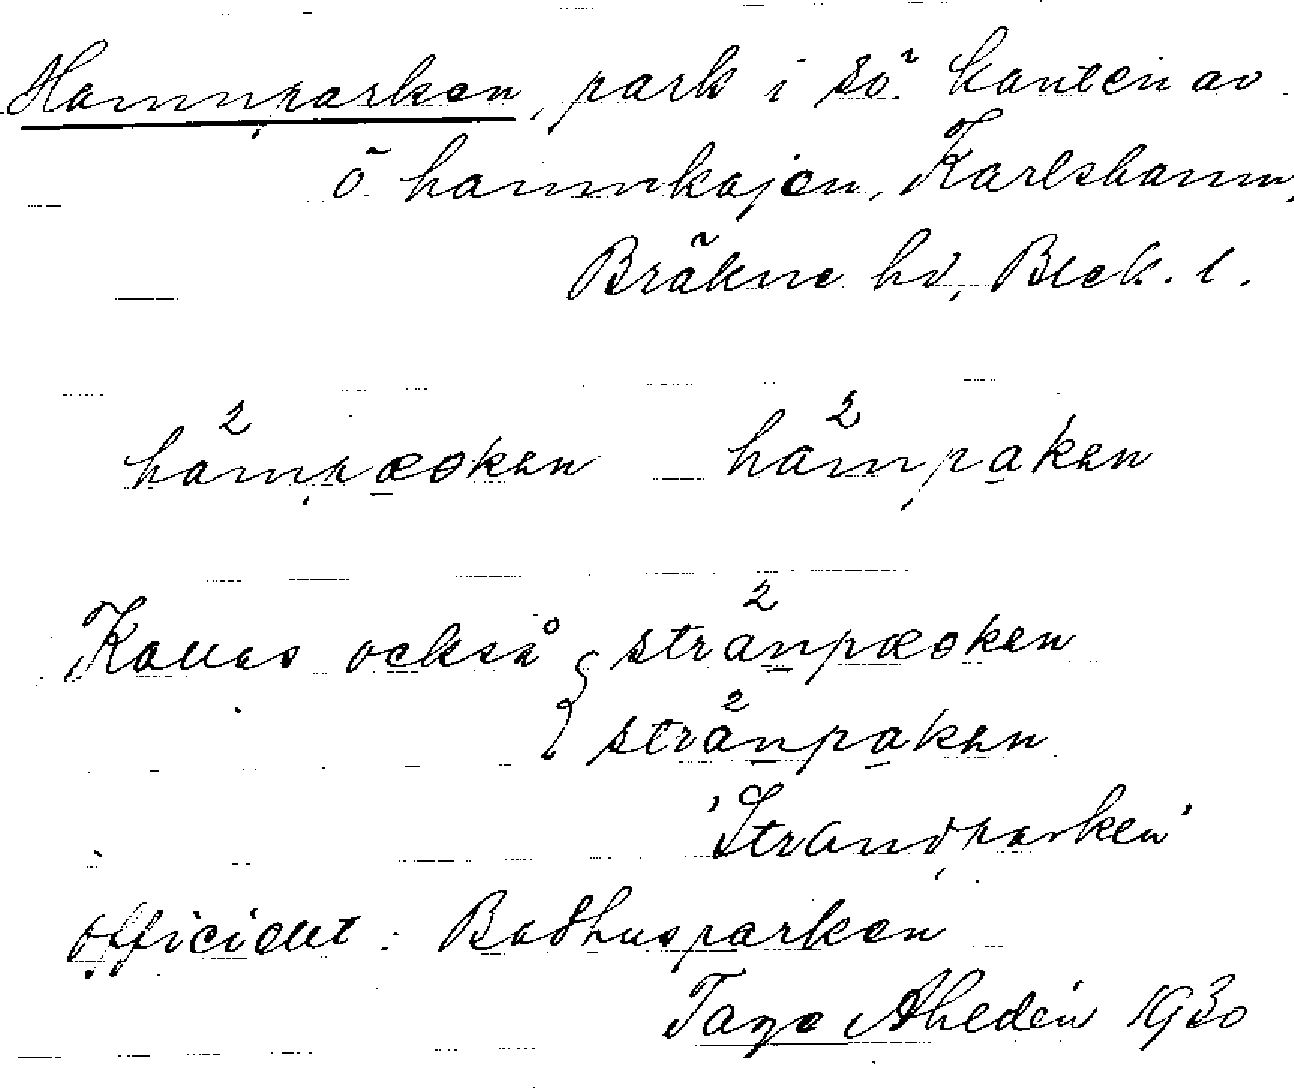 Hamnparken, park i sö. kanten av
ö. hamnkajen, Karlshamn,
Bräkne hd, Blek. l.
2 2
hamnpæoken – hamnpaken
Kallas också { 2 stranpæoken
{ 2 stranpaken
'Strandparken'
officiellt: Badhusparken
Tage Ahldén 1930